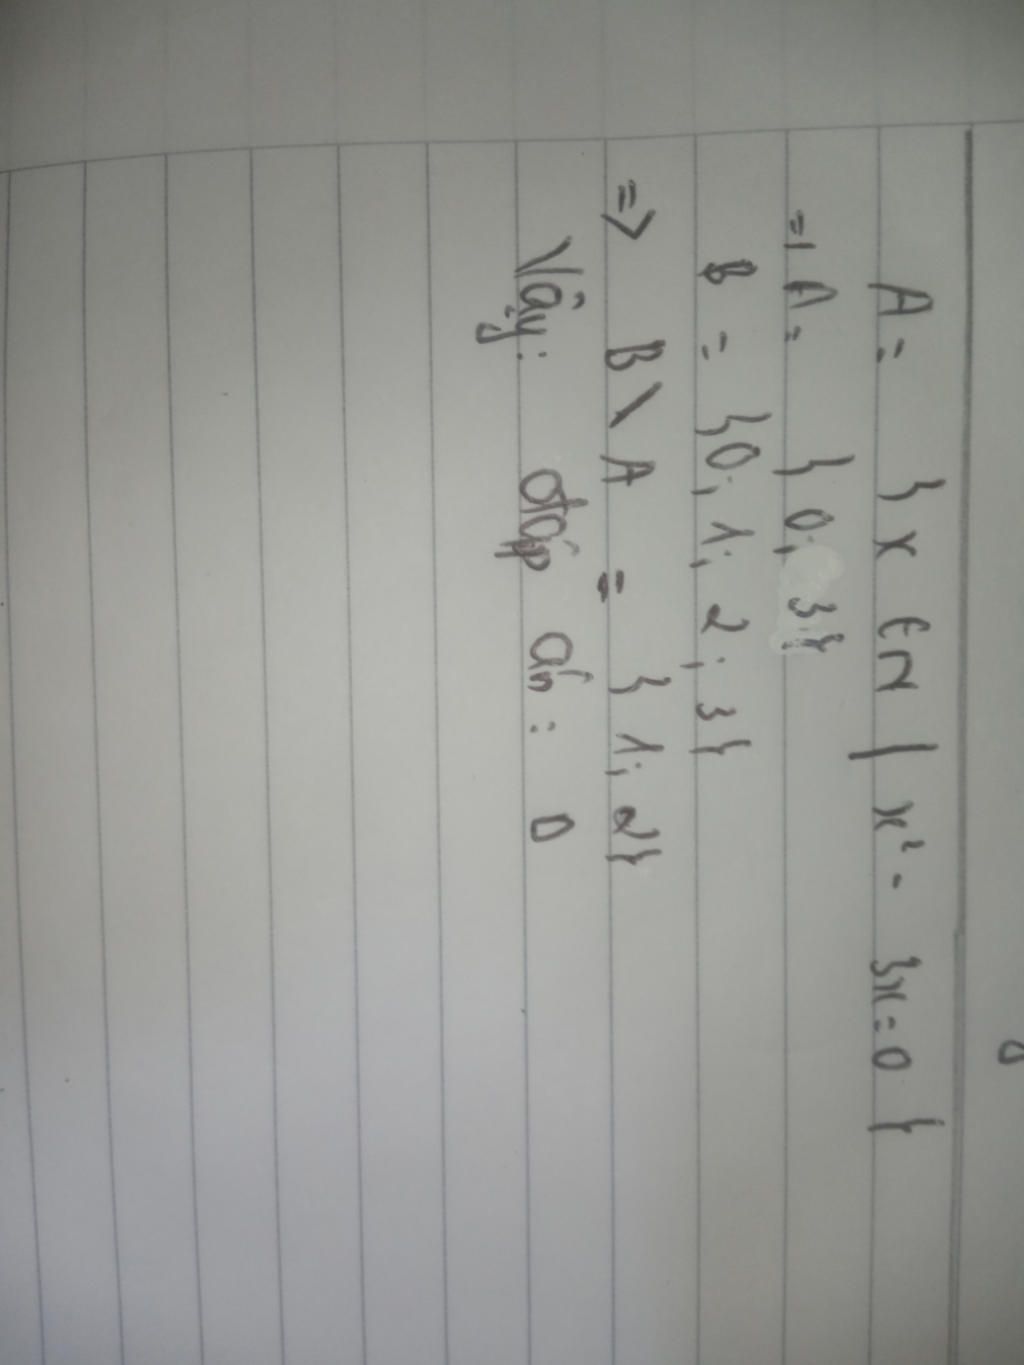 A = } x ∈ N | x² - 3x = 0 {
=) A = } 0; 3 {
B = } 0; 1; 2; 3 {
=> B \ A = } 1; 2 {
Vậy: Đáp án: D